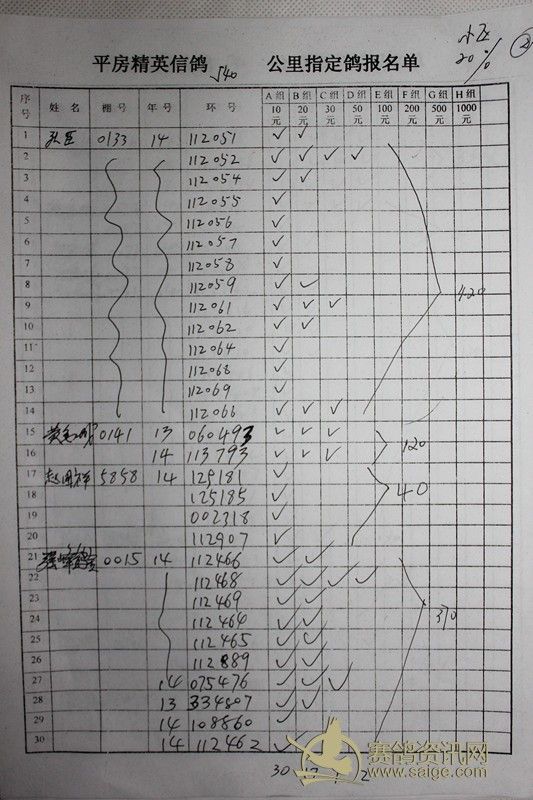 小飞
20% ②
平房精英信鸽 540 公里指定鸽报名单
序号 姓名 棚号 年号 环号 A组 10元 B组 20元 C组 30元 D组 50元 E组 100元 F组 200元 G组 500元 H组 1000元
1 0133 14 112051 ✓ ✓
2 112052 ✓ ✓ ✓ ✓
3 112054 ✓ ✓
4 112055 ✓
5 112056 ✓
6 112057 ✓
7 112058 ✓
8 112059 ✓ ✓ 420
9 112061 ✓ ✓ ✓
10 112062 ✓ ✓
11 112064 ✓
12 112068 ✓
13 112069 ✓
14 112066 ✓ ✓ ✓
15 0141 13 060493 ✓ ✓ ✓
16 14 113793 ✓ ✓ ✓ 120
17 5858 14 125181 ✓
18 125185 ✓ 40
19 002318 ✓
20 112907 ✓
21 0015 14 112466 ✓ ✓
22 112468 ✓ ✓ ✓ ✓
23 112469 ✓ ✓
24 112464 ✓ ✓ 370
25 112465 ✓ ✓
26 112889 ✓ ✓
27 14 075476 ✓ ✓ ✓
28 13 334807 ✓ ✓
29 14 108860 ✓
30 14 112462 ✓
30 17 2
赛鸽资讯网
www.saige.com